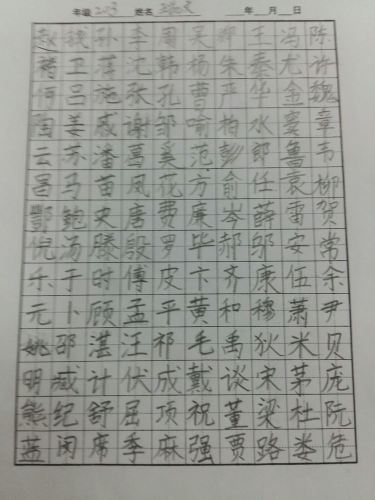 年级 203 姓名 年 月 日
赵钱孙李周吴郑王冯陈
褚卫蒋沈韩杨朱秦尤许
何吕施张孔曹严华金魏
陶姜戚谢邹喻柏水窦章
云苏潘葛奚范彭郎鲁韦
昌马苗凤花方俞任袁柳
酆鲍史唐费廉岑薛雷贺
倪汤滕殷罗毕郝邬安常
乐于时傅皮卞齐康伍余
元卜顾孟平黄和穆萧尹
姚邵湛汪祁毛禹狄米贝
明臧计伏成戴谈宋茅庞
熊纪舒屈项祝董梁杜阮
蓝闵席季麻强贾路娄危